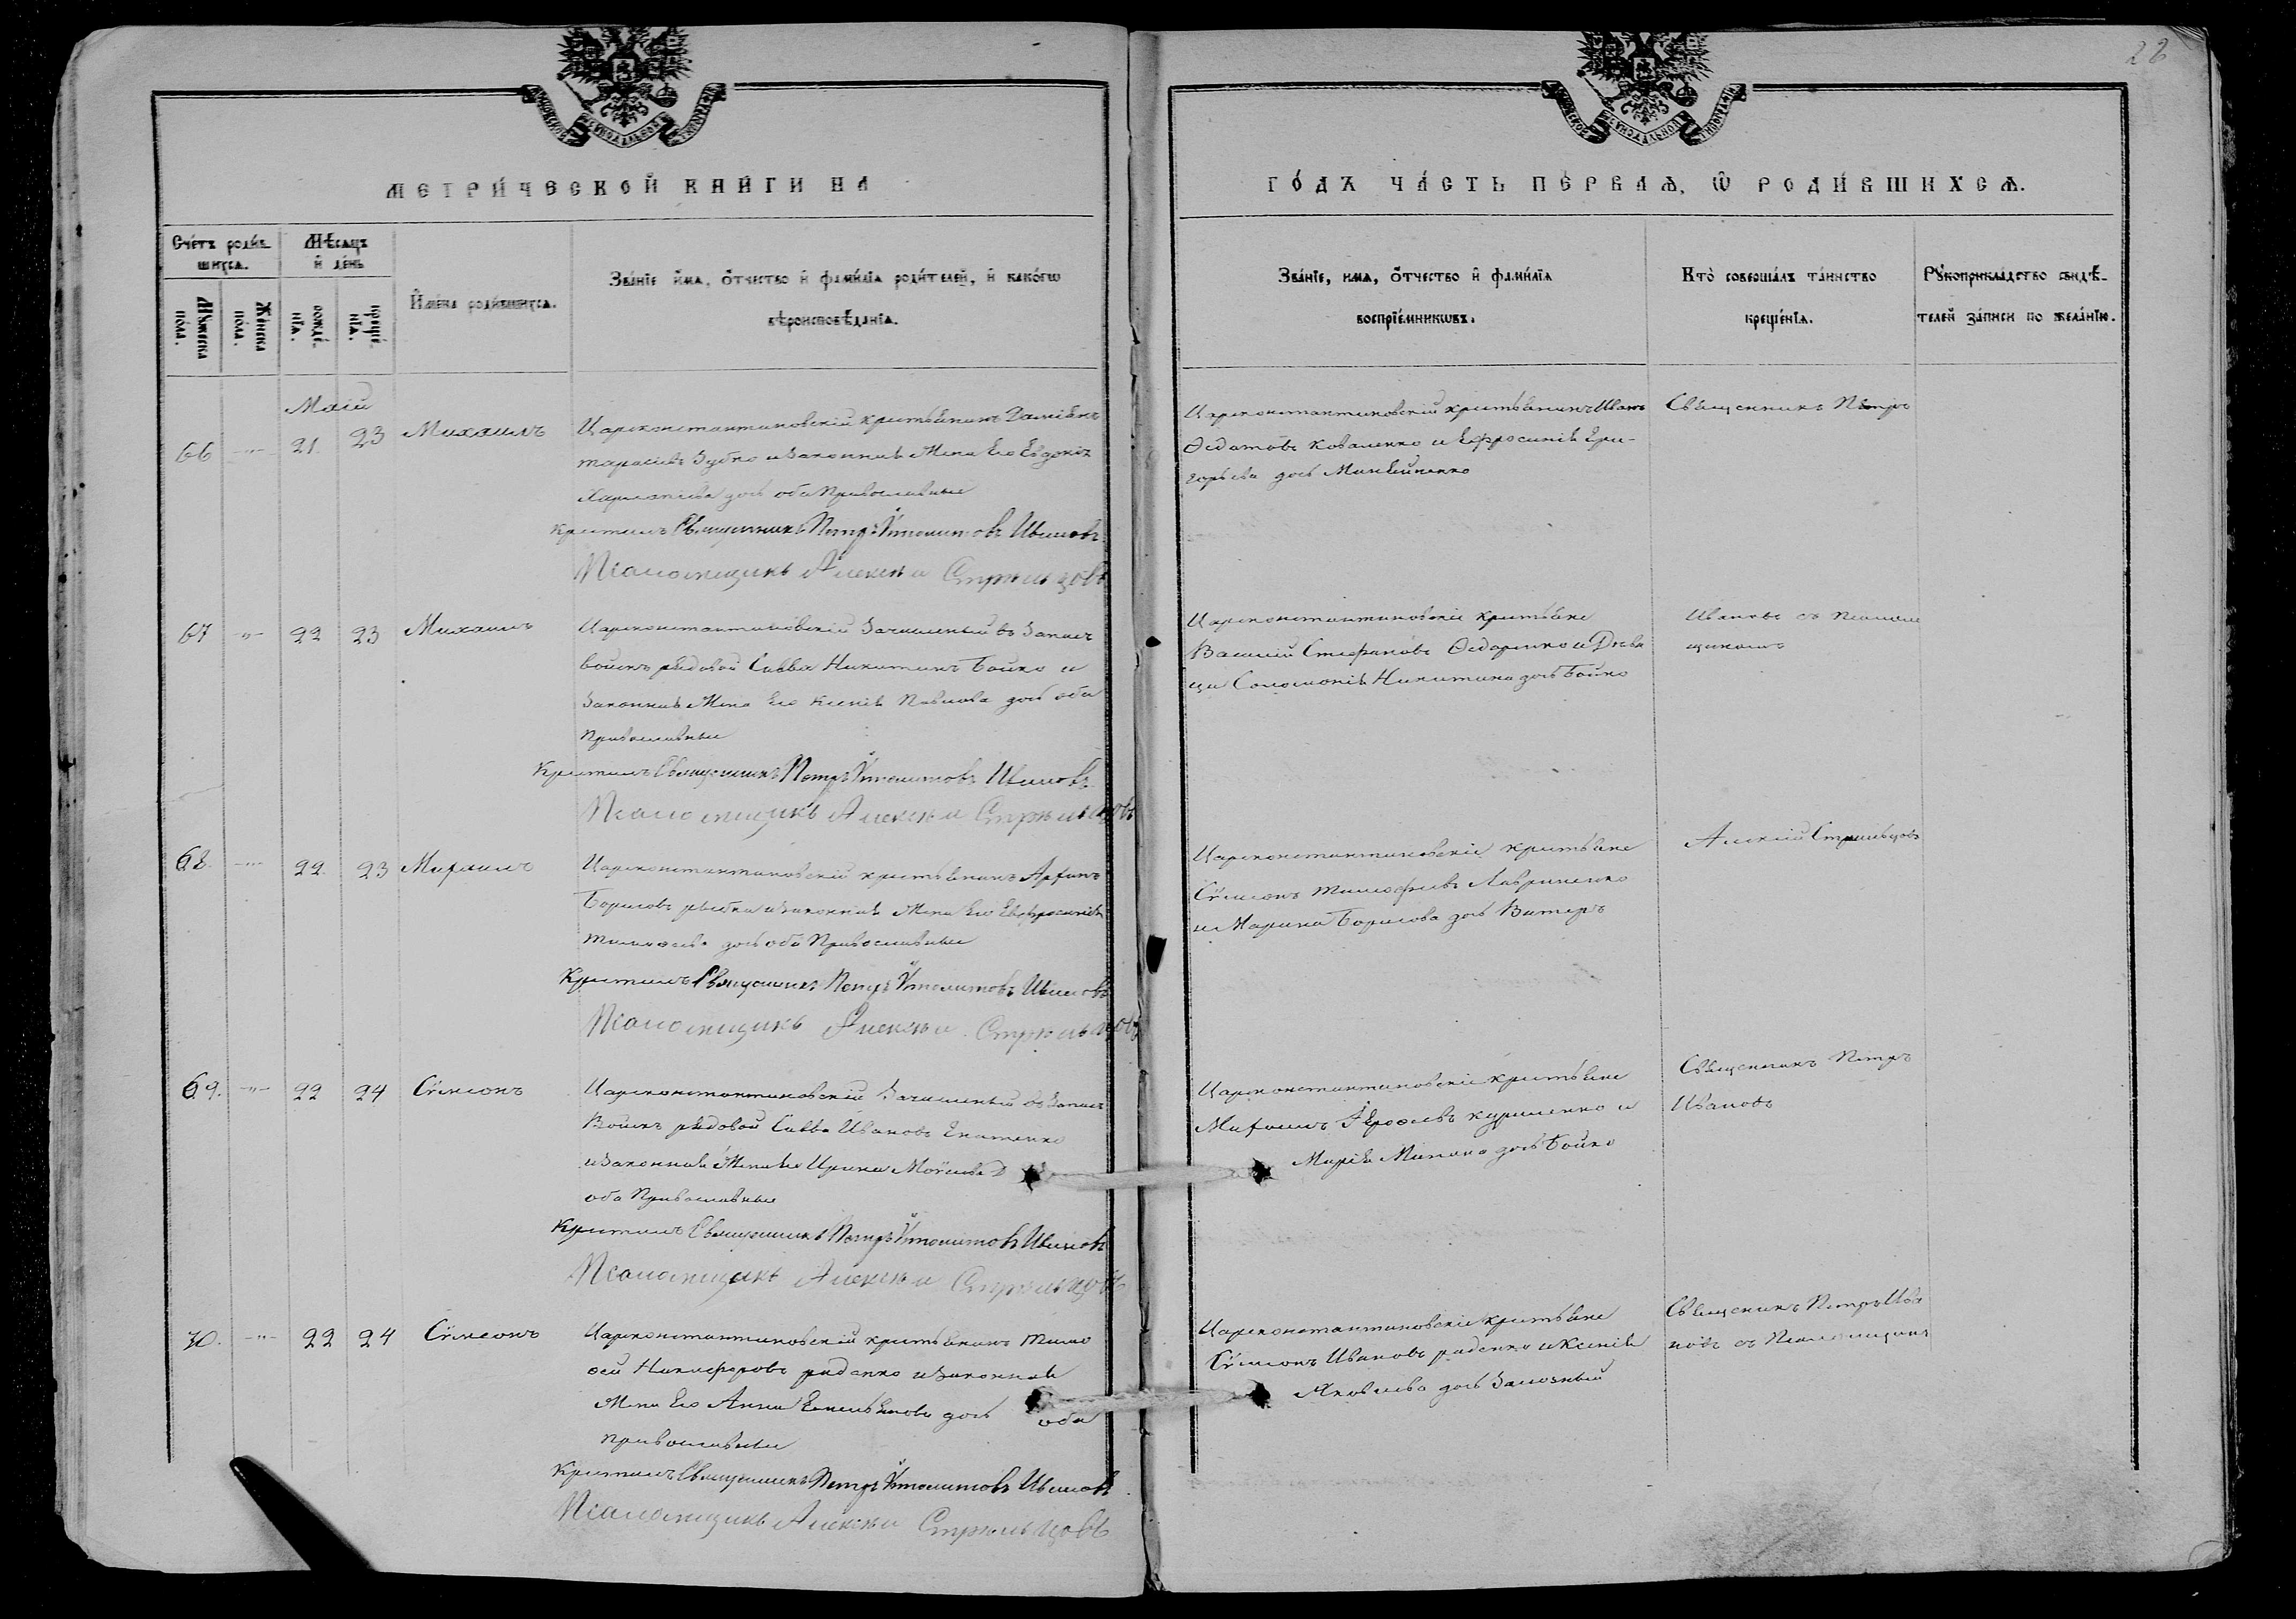 28
МЕТРИ́ЧЕСКОЙ КНИ́ГИ НА
ГО́ДЪ ЧА́СТЬ ПЕ́РВАѦ, Ѡ РОДИ́ВШИХСѦ.
Сче́тъ роди́в
шихсѧ.
Мѣ́сѧцъ
и҆ де́нь
Мꙋ́жеска
по́ла.
Же́нска
по́ла.
рожде́
нїѧ.
креще́
нїѧ.
И҆мена̀ роди́вшихсѧ.
Зва́нїе и҆́мѧ, ѻ҆́тчество и҆ фами́лїѧ роди́телей, и҆ како́гѡ
вѣроисповѣ́данїѧ.
Зва́нїе, и҆́мѧ, ѻ҆́тчество и҆ фами́лїѧ
воспрїе́мникѡвъ.
Кто̀ соверша́лъ та́инство
креще́нїѧ.
Рꙋкоприкла́дство свидѣ́-
телей за́писи по жела́нїю.
Маій
66 -"- 21. 23 Михаилъ
Царсконстантиновскій крестьянинъ
Зубко и законная Жена Его Евдокія
дос оба Православные
Крестилъ Священникъ Петръ Vполитовъ Ивановъ
Псаломщикъ Алексѣй Стрельцовъ
Царсконстантиновскій крестьянинъ Иванъ
Ѳедотовъ Коваленко и Ефросинія Гри-
горьева дос
Священникъ Петръ
67 -"- 22 23 Михаилъ
Царсконстантиновскій Зачисленный въ Запасъ
войскъ рядовой Савва Никитинъ Бойко и
Законная Жена Его Ксенія Павлова дос оба
Православные
Крестилъ Священникъ Петръ Vполитовъ Ивановъ
Псаломщикъ Алексѣй Стрельцовъ
Царсконстантиновскіе крестьяне
Василій Стефановъ Ѳедоренко и Дѣви
ца Соломонія Никитина дос Бойко
Ивановъ съ Псалом
щикомъ
68. -"- 22. 23 Михаилъ
Царсконстантиновскій крестьянинъ
Борисовъ и законная Жена Его Евфросинія
дос оба Православные
Крестилъ Священникъ Петръ Vполитовъ Ивановъ
Псаломщикъ Алексѣй Стрельцовъ
Царсконстантиновскіе крестьяне
Сѵмеонъ Тимофеевъ Лавриненко
и Марина Борисова дос
Алексій Стрельцовъ
69. -"- 22 24 Сѵмеонъ
Царсконстантиновскій Зачисленный въ Запасъ
Войскъ рядовой Савва Ивановъ
и Законная Жена Его Ирина
оба Православные
Крестилъ Священникъ Петръ Vполитовъ Ивановъ
Псаломщикъ Алексѣй Стрельцовъ
Царсконстантиновскіе крестьяне
Михаилъ и
Марія дос Бойко
Священникъ Петръ
Ивановъ
70. -"- 22 24 Сѵмеонъ
Царсконстантиновскій крестьянинъ Тимо
ѳей Никифоровъ раденко и законная
Жена Его Анна Емельянова дос оба
Православные
Крестилъ Священникъ Петръ Vполитовъ Ивановъ
Псаломщикъ Алексѣй Стрельцовъ
Царсконстантиновскіе крестьяне
Сѵмеонъ Ивановъ раденко и Ксенія
Яковлева дос
Священикъ Петръ Ива
новъ съ Псаломщик